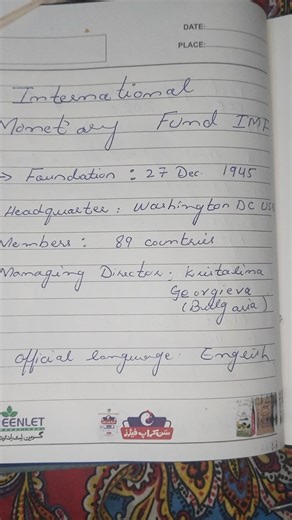 DATE:
PLACE:
International
Monetary Fund IMF
→ Foundation : 27 Dec 1945
Headquarter : Washington DC US
Members : 89 countries
Managing Director : Kristalina
Georgieva
(Bulgaria)
official language : English
EENLET